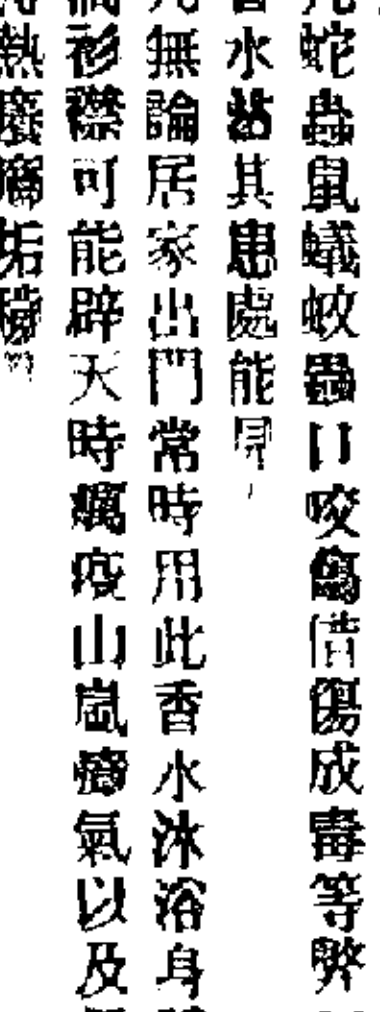 蛇蟲鼠蟻蚊蟲口咬傷借傷成毒等弊
水沾其患處能見
無論居家出門常時用此香水沐浴身
衫襟可能辟天時癘疫山嵐瘴氣以及
熱癈垢穢